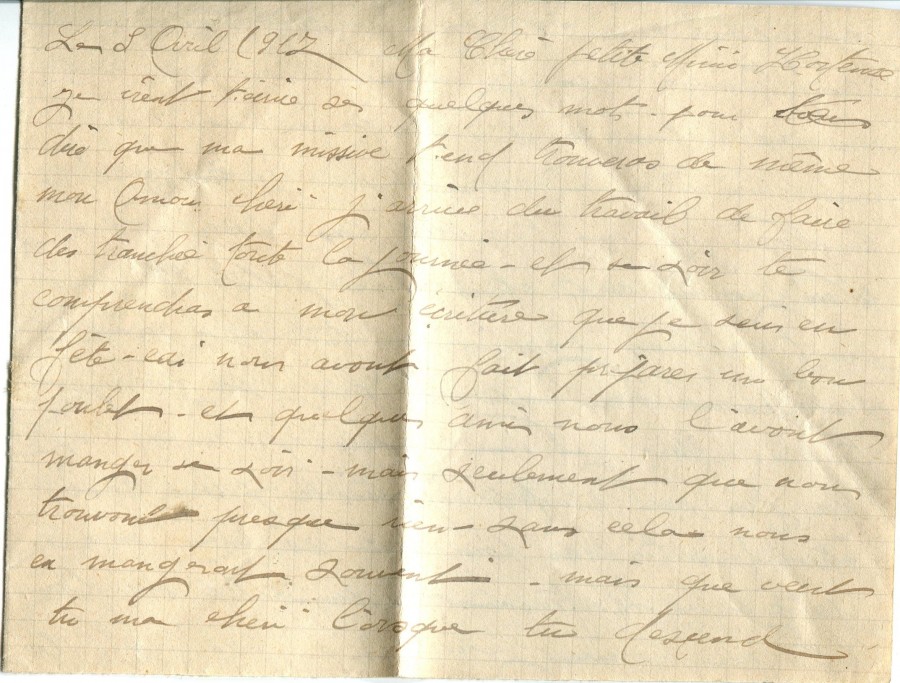 Le 8 Avril 1917 Ma Chère petite Mimi Hortense
je vient t'écrire ses quelques mots - pour
dire que ma missive t'end trouveras de même
mon Amour cheri j'arrive du travail de faire
des tranchée toute la journée - et se soir te
comprendras a mon écriture que je suis en
fête - edi nous avont fait préparer un bon
poulet - et quelques amis nous l'avont
manger se soir - mais seulement que nous
trouvont presque rien - sans cela nous
en mangerait souvent - mais que veut
tu ma cheri lorsque tu descend